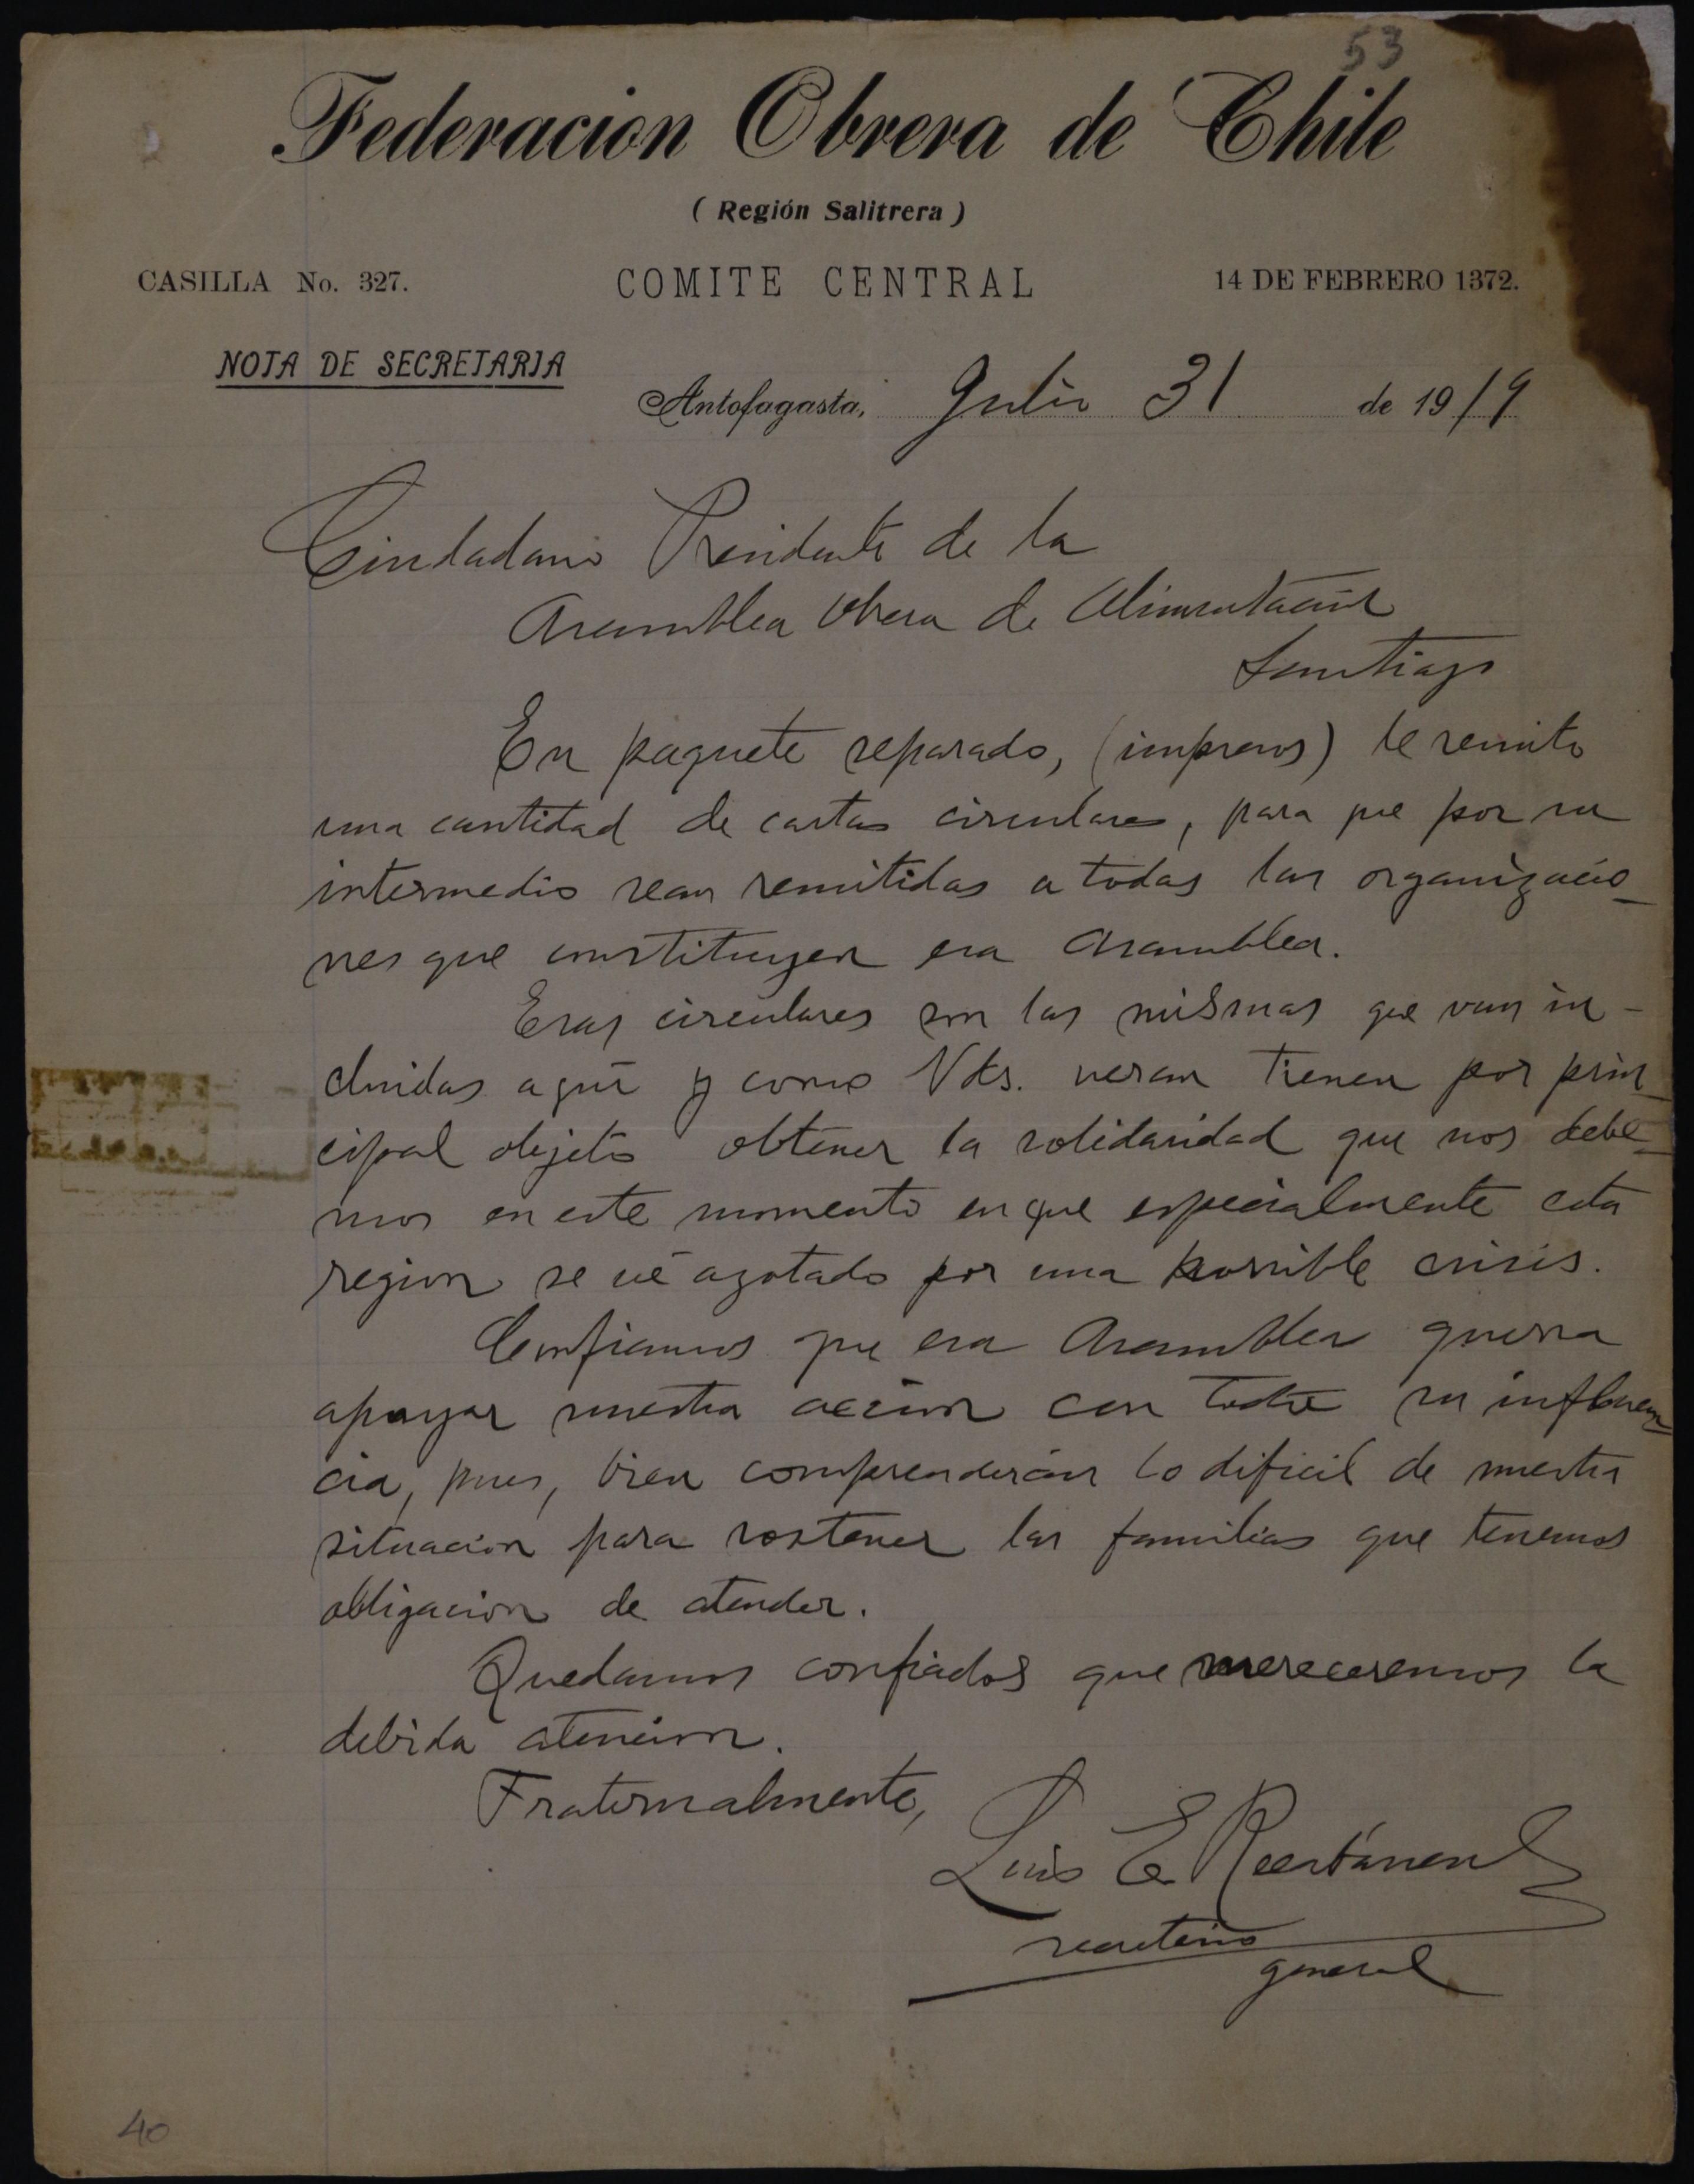 53
Federacion Obrera de Chile
( Región Salitrera )
CASILLA No. 327.
COMITE CENTRAL
14 DE FEBRERO 1372.
NOTA DE SECRETARIA
Antofagasta, Julio 31 de 1919
Ciudadano Presidente de la
Asamblea Obrera de Alimentación
Santiago
En paquete separado, (impresos) le remito
una cantidad de cartas circulares, para que por su
intermedio sean remitidas a todas las organizacio-
nes que constituyen esa Asamblea.
Esas circulares son las mismas que van in-
cluidas aquí y como Vds. veran tienen por prin-
cipal objeto obtener la solidaridad que nos debe-
mos en este momento en que especialmente esta
region se vé azotado por una horrible crisis.
Confiamos que esa Asamblea querra
apoyar nuestra accion con toda su influen-
cia, pues, bien comprenderán lo dificil de nuestra
situacion para sostener las familias que tenemos
obligacion de atender.
Quedamos confiados que mereceremos la
debida atencion.
Fraternalmente,
Luis E Recabarren S
secretario
general
40